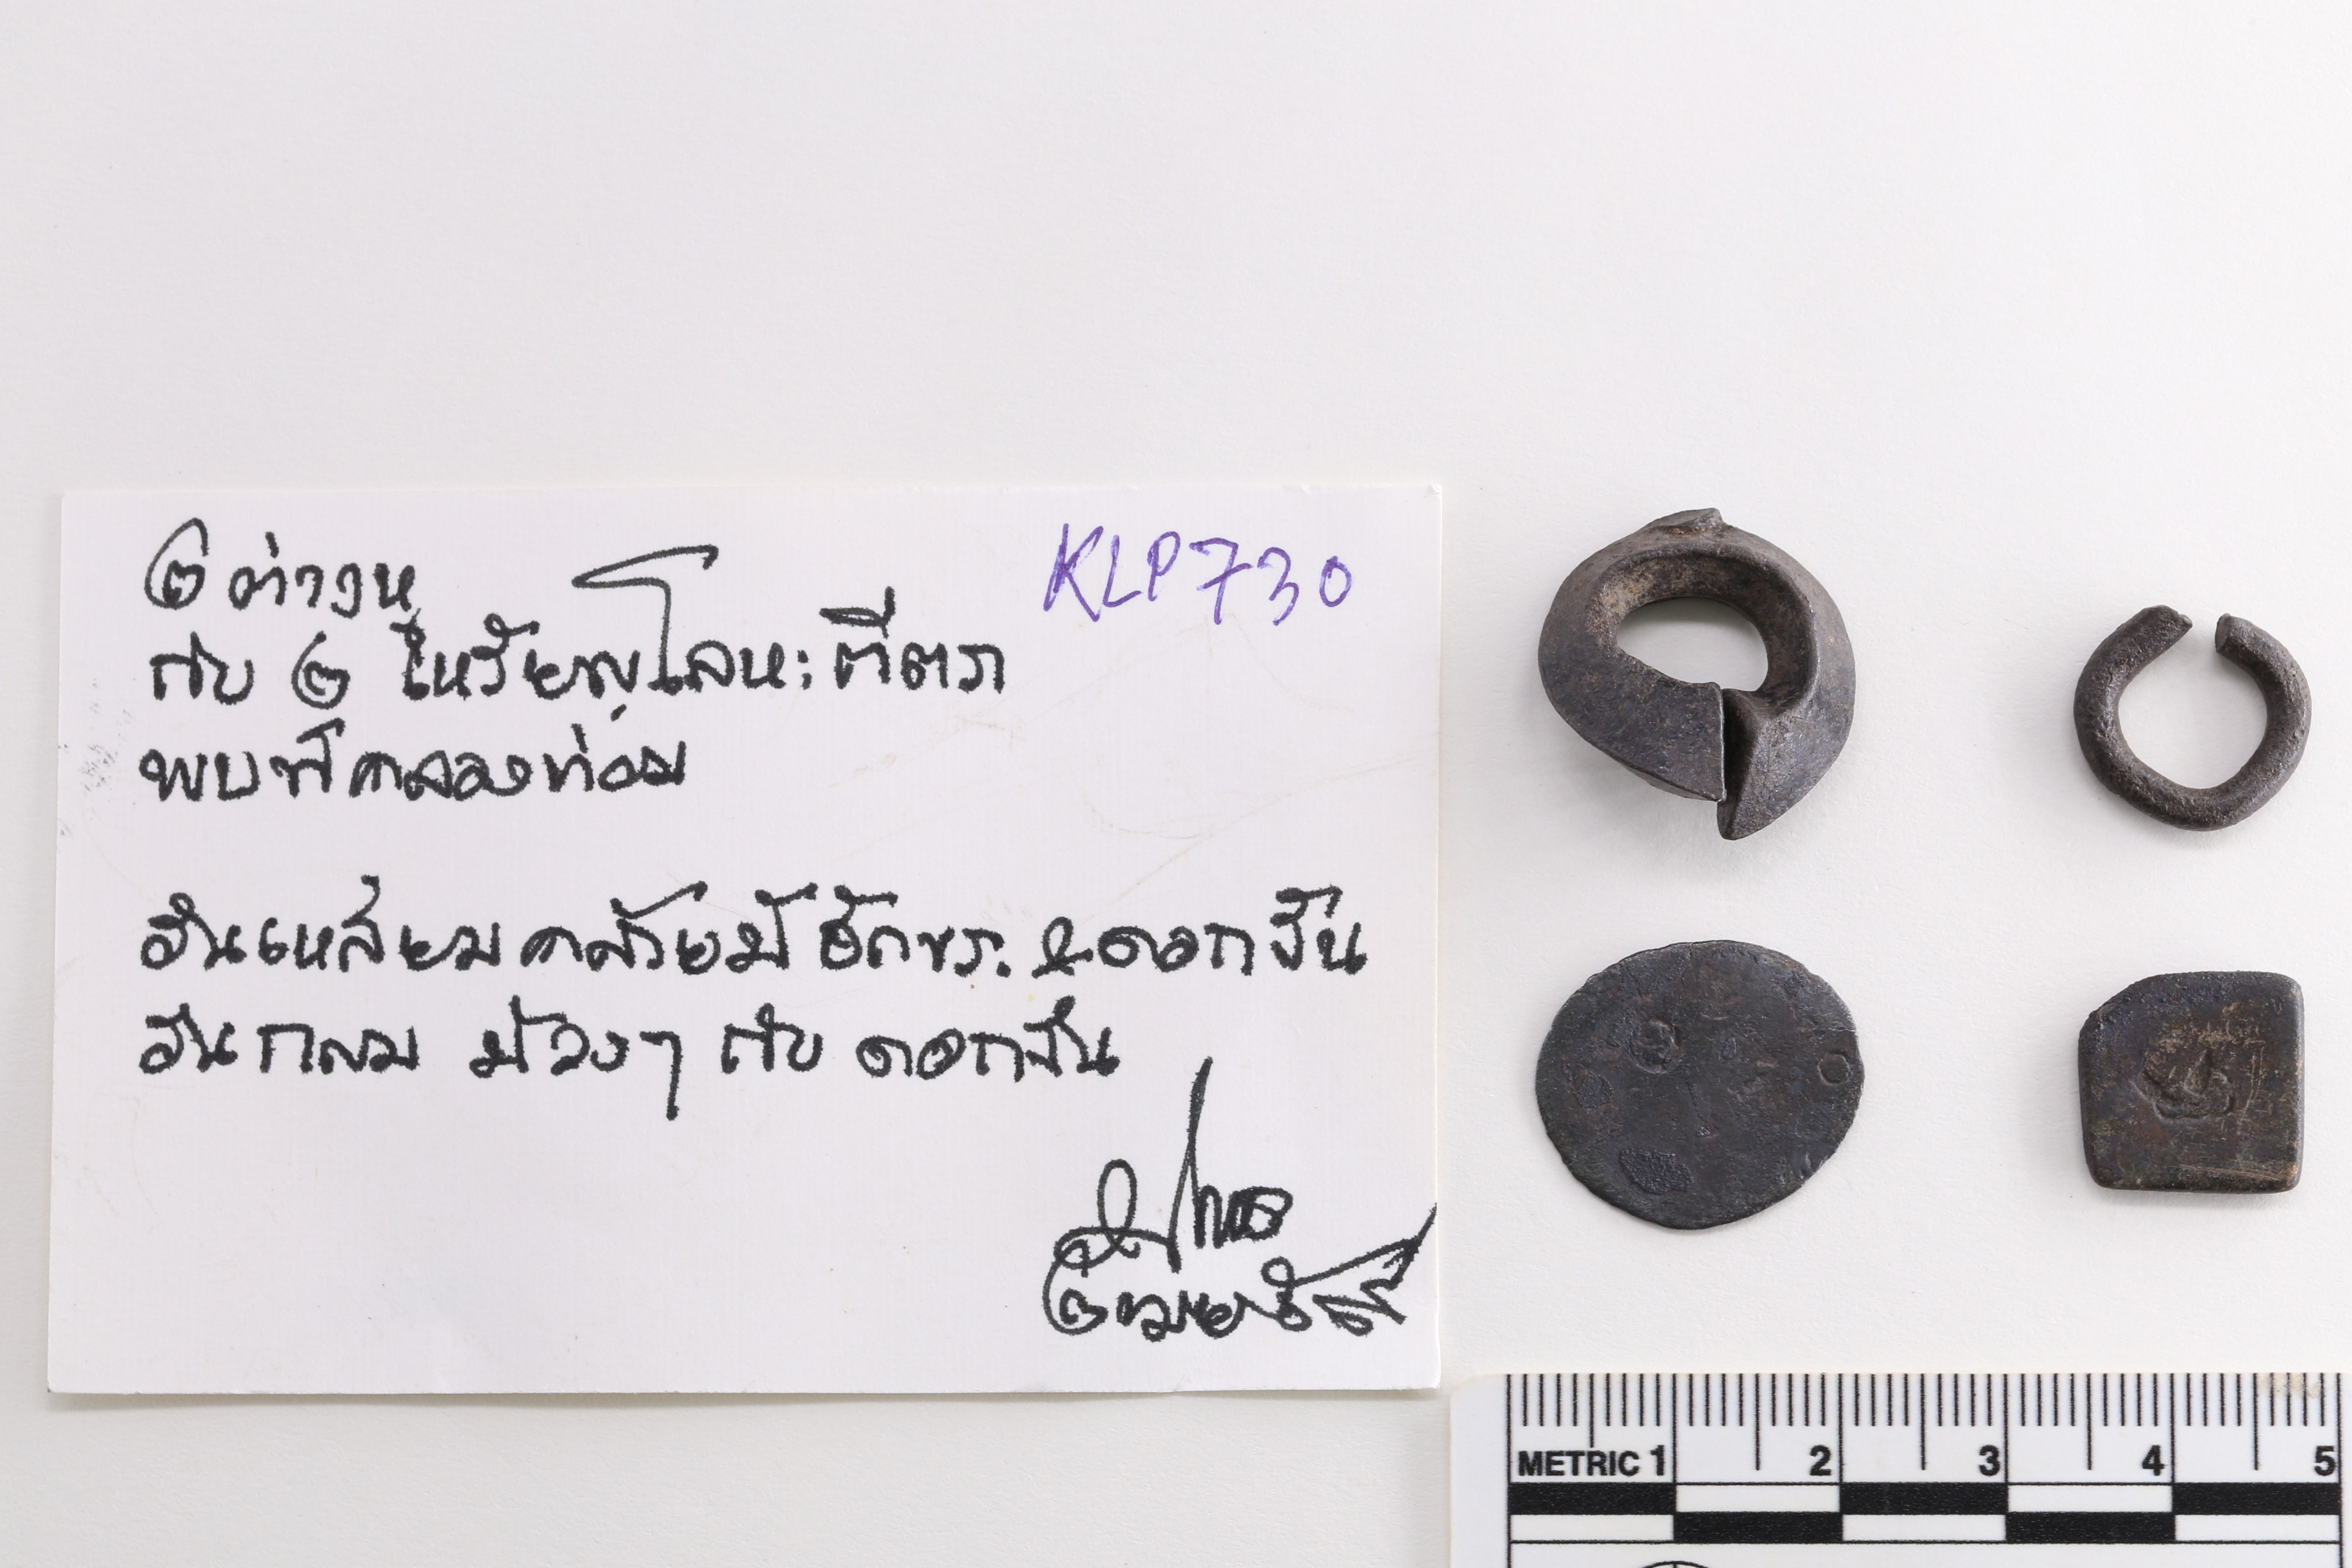 ๒ ต่างหู
KLP730
กับ ๒ เหรียญโลหะตีตรา
พบที่คลองท่อม
อันเหลี่ยมคล้ายมี อักขระ & ดอกจัน
อันกลม ม้วงๆ กับ ดอกจัน
METRIC 1 2 3 4 5